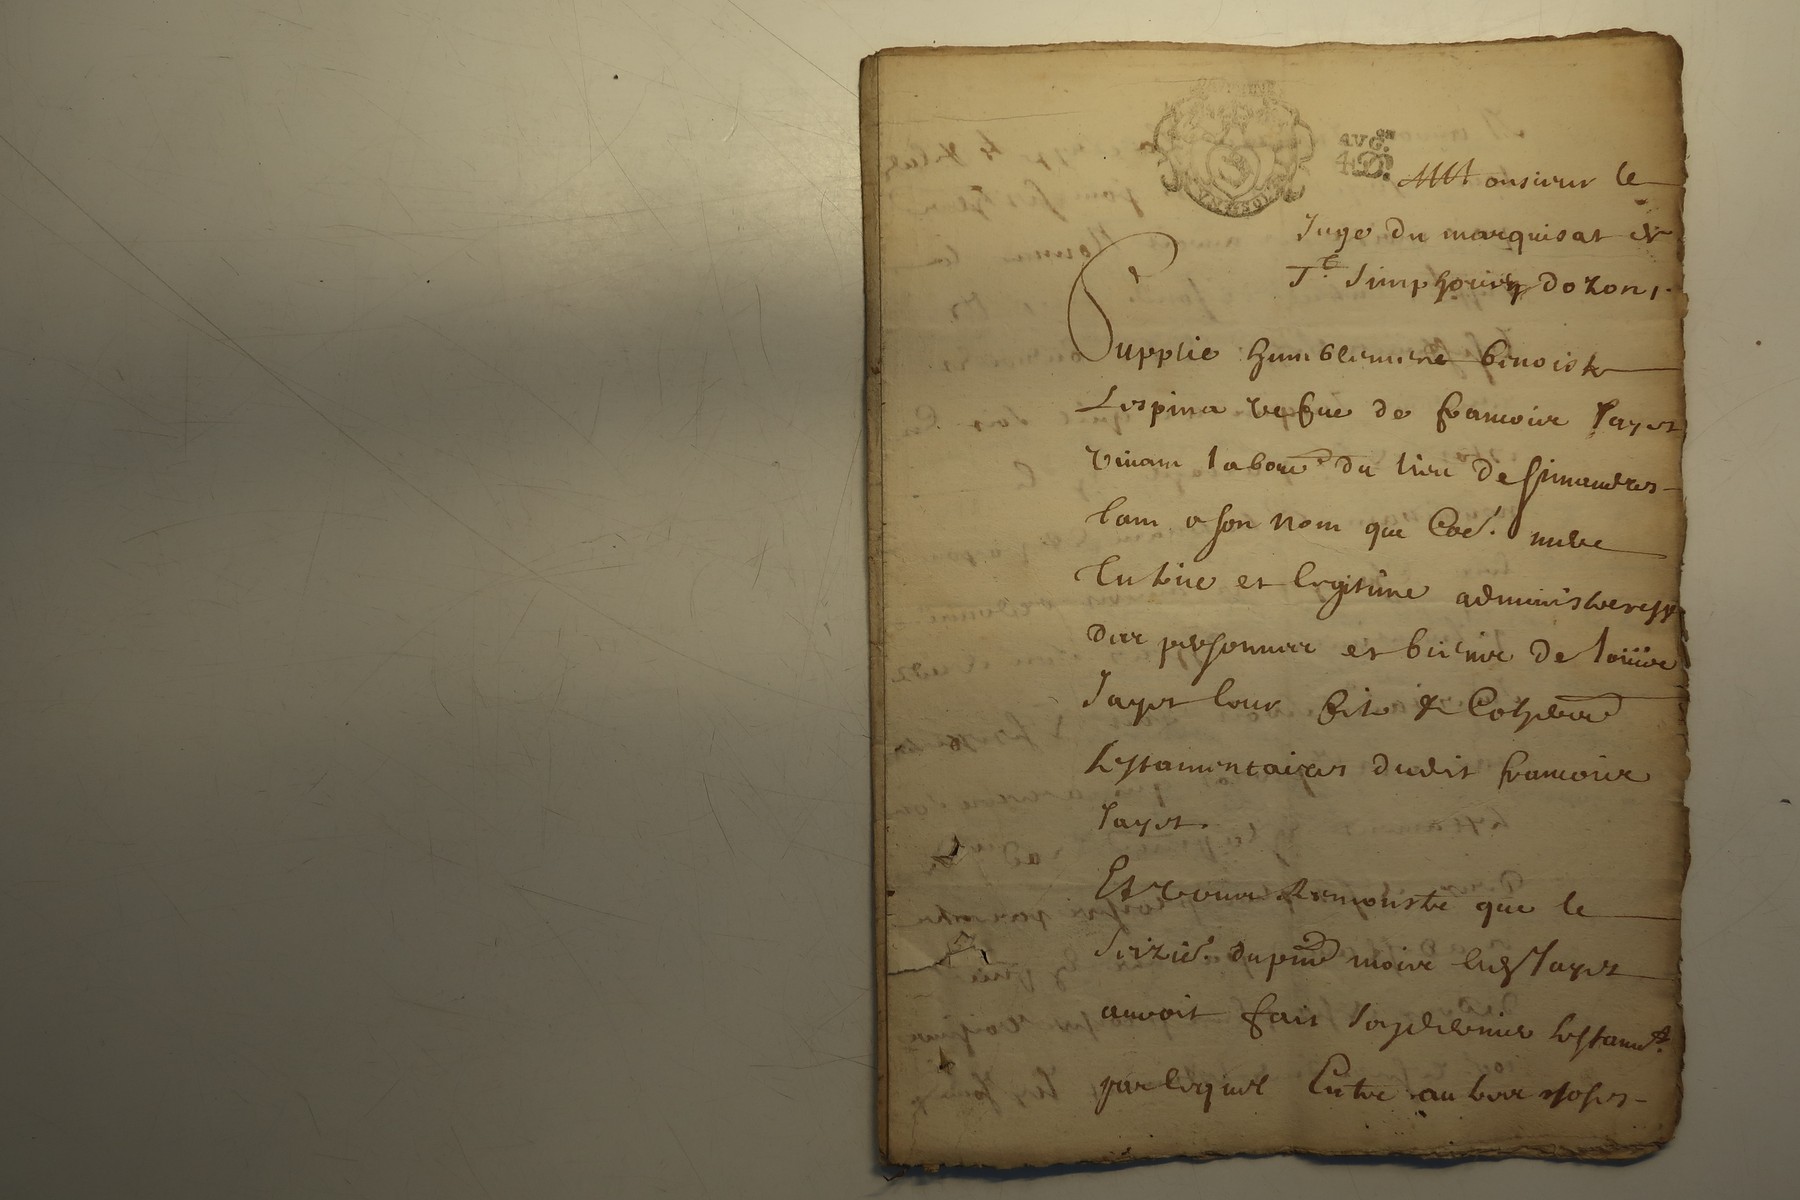 AVG.on
4 D.
Monsieur le
Juge du marquisat et
St. Simphorien dozon,.
Supplie humblement benoiste
Lespina vefve de francois Jayet
vivant labour. du lieu de Simandres
tant a son nom que Coe. mere
tutrice et legitime administeresse
des personnes et biens de
Jayet leur fils & Coheritier
testamentaires dudit francois
Jayet.
Et vous Remonstre que le
seizie. du pnt mois ledit Jayet
auroit fait son dernier testamt.
par lequel Entre autres choses